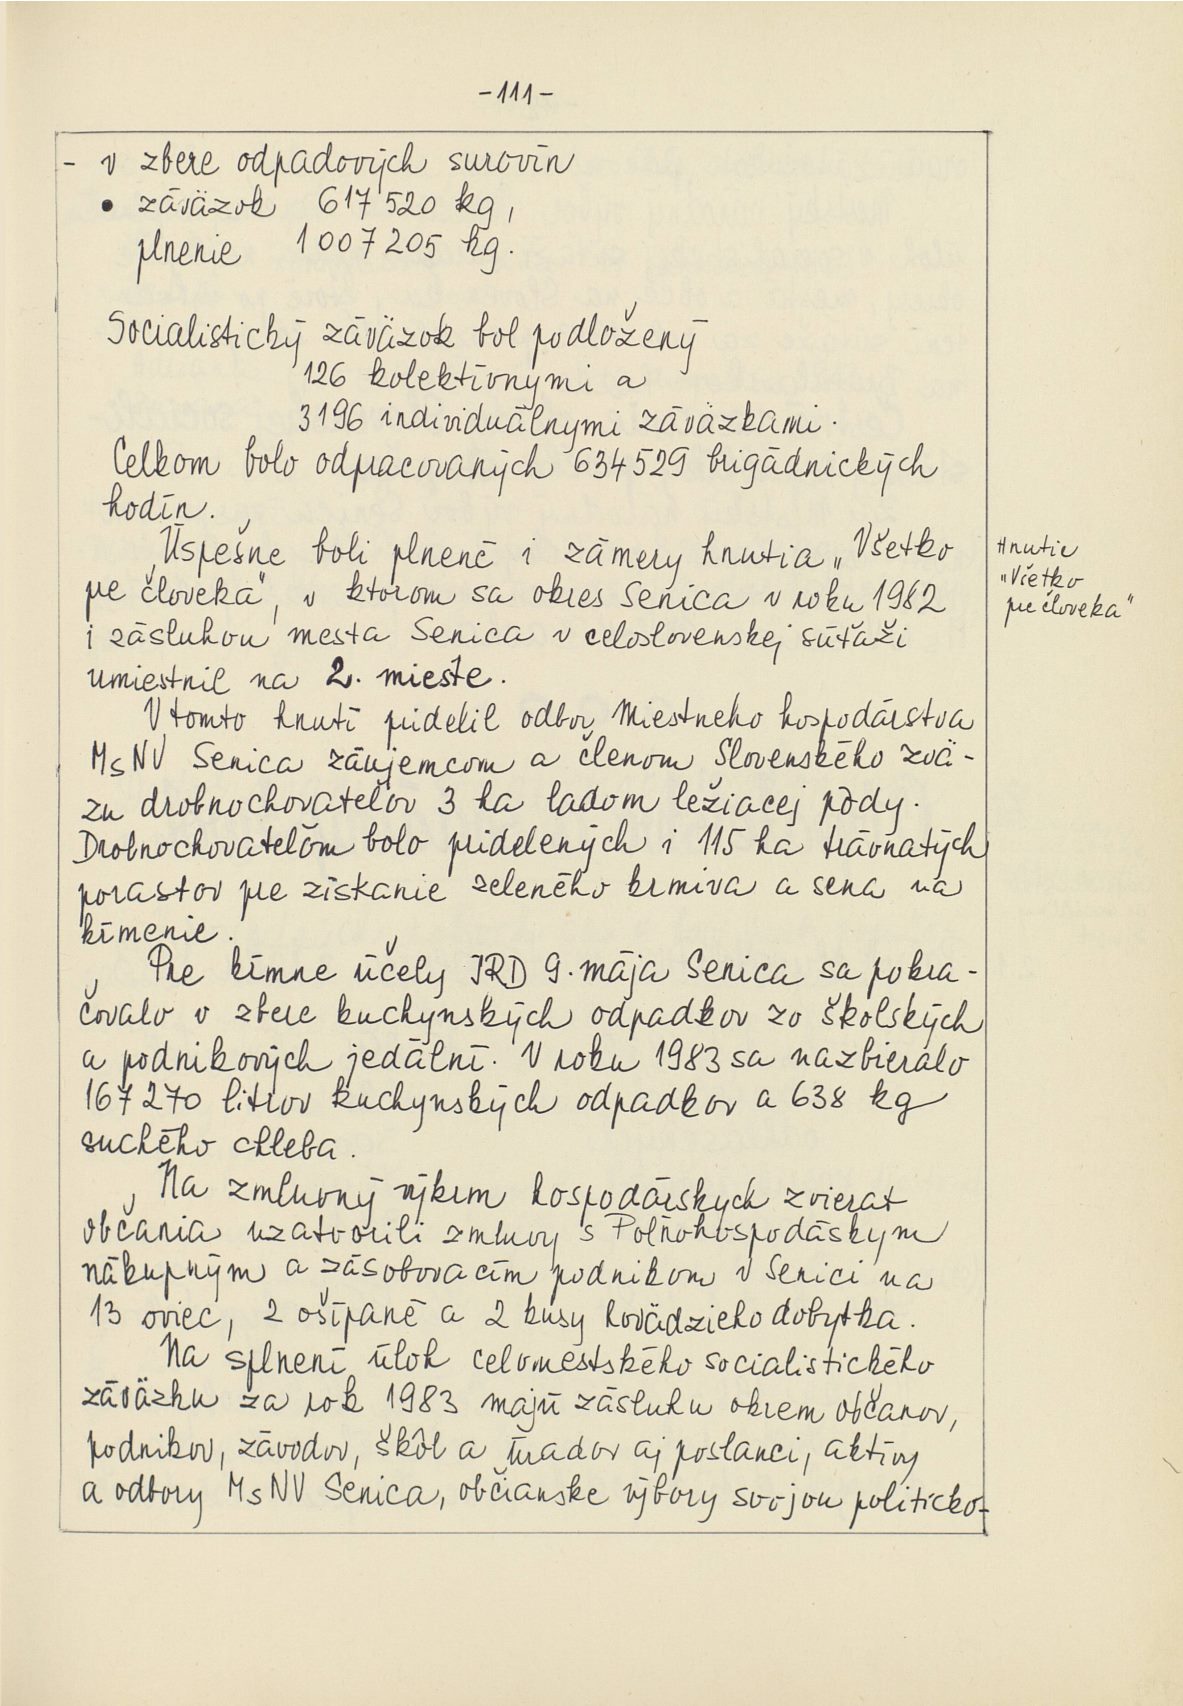 -111-
- v zbere odpadových surovín
• záväzok 617 520 kg,
plnenie 1 007 205 kg.
Socialistický záväzok bol podložený
126 kolektívnymi a
3196 individuálnymi záväzkami.
Celkom bolo odpracovaných 634 529 brigádnických
hodín.
Úspešne boli plnené i zámery hnutia „Všetko
pre človeka", v ktorom sa okres Senica v roku 1982
i zásluhou mesta Senica v celoslovenskej súťaži
umiestnil na 2. mieste.
V tomto hnutí pridelil odbor Miestneho hospodárstva
MsNV Senica záujemcom a členom Slovenského zvä-
zu drobnochovateľov 3 ha ladom ležiacej pôdy.
Drobnochovateľom bolo pridelených i 115 ha trávnatých
porastov pre získanie zeleného krmiva a sena na
kŕmenie.
Pre kŕmne účely JRD 9. mája Senica sa pokra-
čovalo v zbere kuchynských odpadkov zo školských
a podnikových jedální. V roku 1983 sa nazbieralo
167 270 litrov kuchynských odpadkov a 638 kg
suchého chleba.
Na zmluvný výkrm hospodárskych zvierat
občania uzatvorili zmluvy s Poľnohospodáskym
nákupným a zásobovacím podnikom v Senici na
13 oviec, 2 ošípané a 2 kusy hovädzieho dobytka.
Na splnení úloh celomestského socialistického
záväzku za rok 1983 majú zásluhu okrem občanov,
podnikov, závodov, škôl a úradov aj poslanci, aktívy
a odbory MsNV Senica, občianske výbory svojou politicko-
Hnutie
„Všetko
pre človeka"